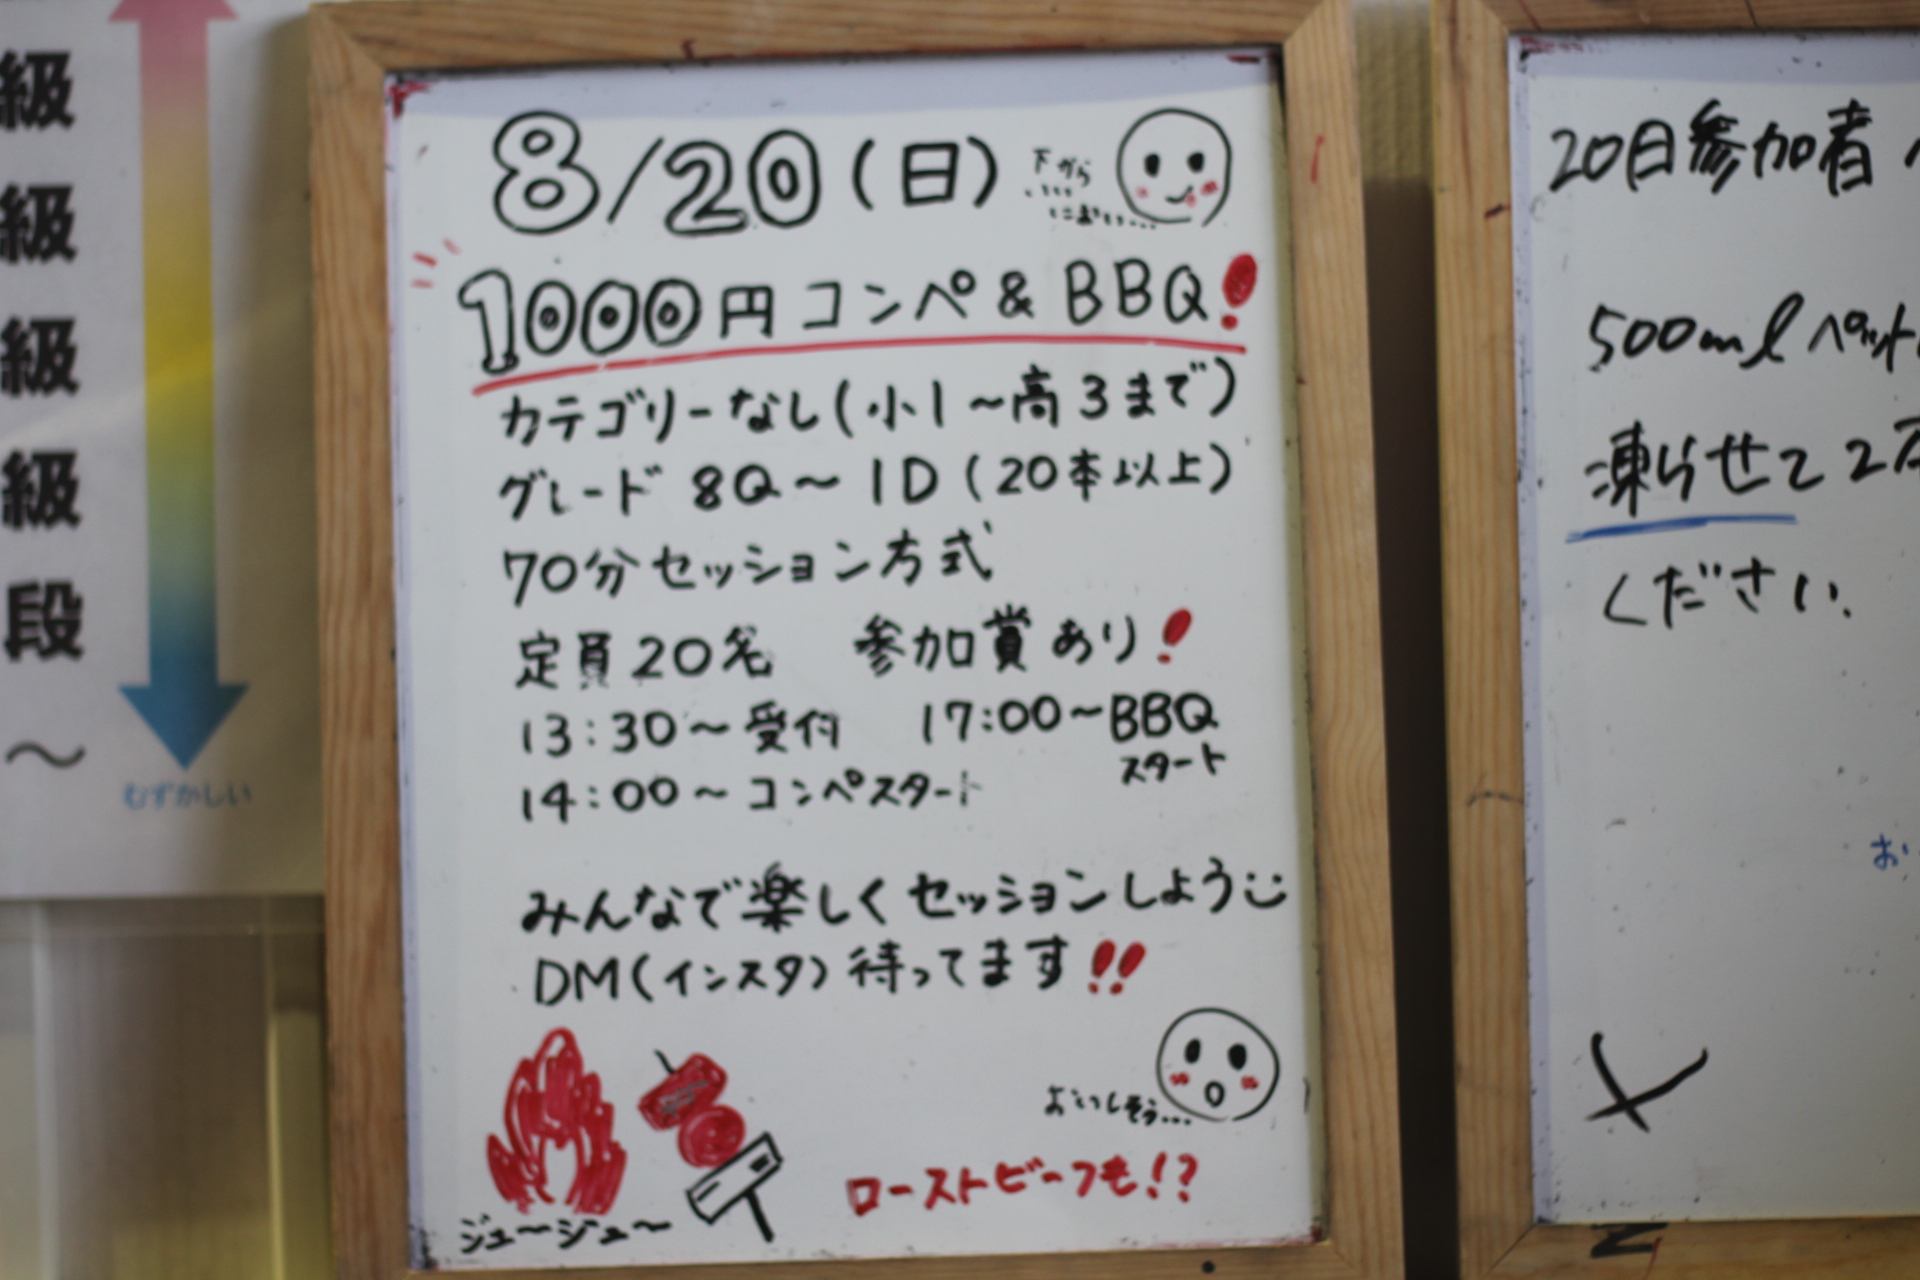 級
級
級
級
段
〜
むずかしい
8/20(日)
下から
におい…
1000円コンペ&BBQ!
カテゴリーなし(小1〜高3まで)
グレード 8Q〜1D(20本以上)
70分セッション方式
定員20名 参加賞あり!
13:30〜受付 17:00〜BBQ
スタート
14:00〜コンペスタート
みんなで楽しくセッションしよう
DM(インスタ)待ってます!!
おいしそう…
ローストビーフも!?
ジュ〜ジュ〜
20日参加者
500ml ペット
凍らせて2
ください.
お